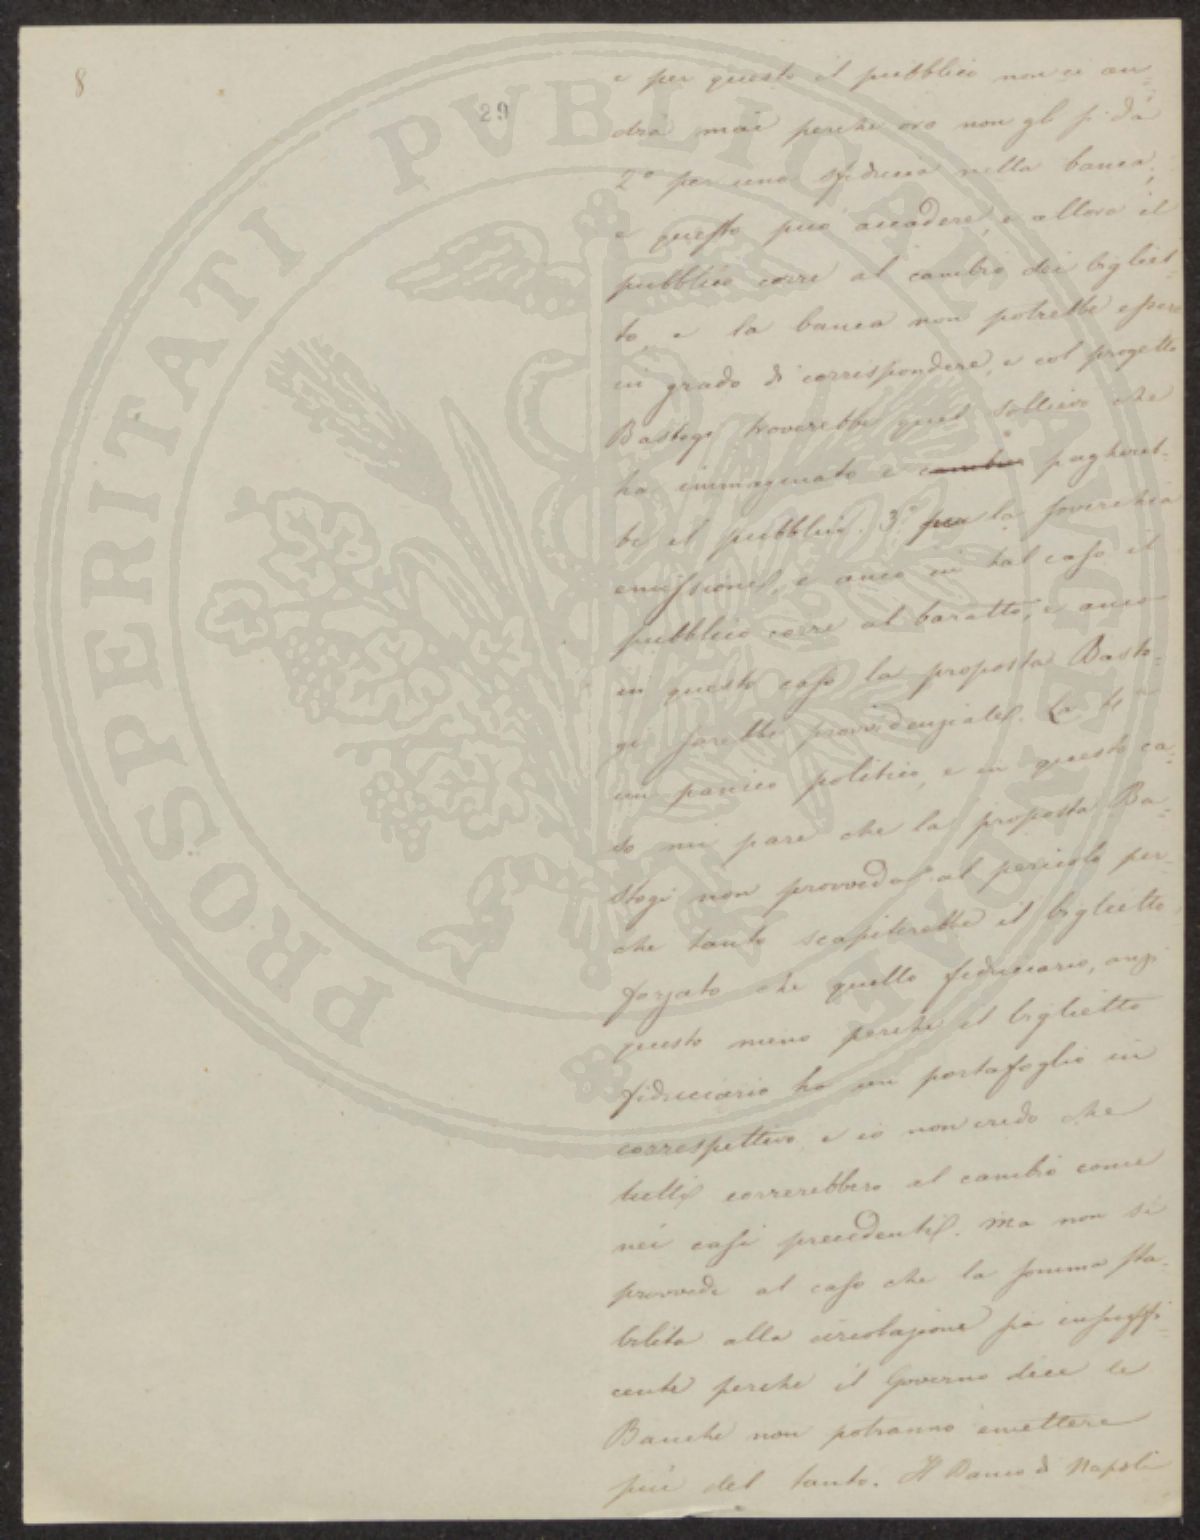 8
29
e per questo il pubblico non ci an=
drà mai perchè oro non gli si dà
2º per una sfiducia nella banca,
e questo può accadere, e allora il
pubblico corre al cambio dei bigliet=
to e la banca non potrebbe essere
in grado di corrispondere, e col progetto
Bastogi troverebbe quel sollievo che
ha immaginato e cambio pagheret=
be il pubblico. 3º per la soverchia
emissione, e anco in tal caso il
pubblico corre al baratto, e anco
in questo caso la proposta Basto=
gi sarebbe provvidenziale. La
un panico politico, e in questo ca=
so mi pare che la proposta Ba=
stogi non provveda al pericolo per=
che tanto scapiterebbe il biglietto
forzato che quello fiduciario, anzi
questo meno perchè il biglietto
fiduciario ha un portafoglio in
correspettivo, e io non credo che
tutti correrebbero al cambio come
nei casi precedenti. Ma non si
provvede al caso che la somma sta=
bilita alla circolazione sia insuffi=
cente perche il Governo dice le
Banche non potranno emettere
più del tanto. Il Banco di Napoli
PROSPERITATI PVBLICAE